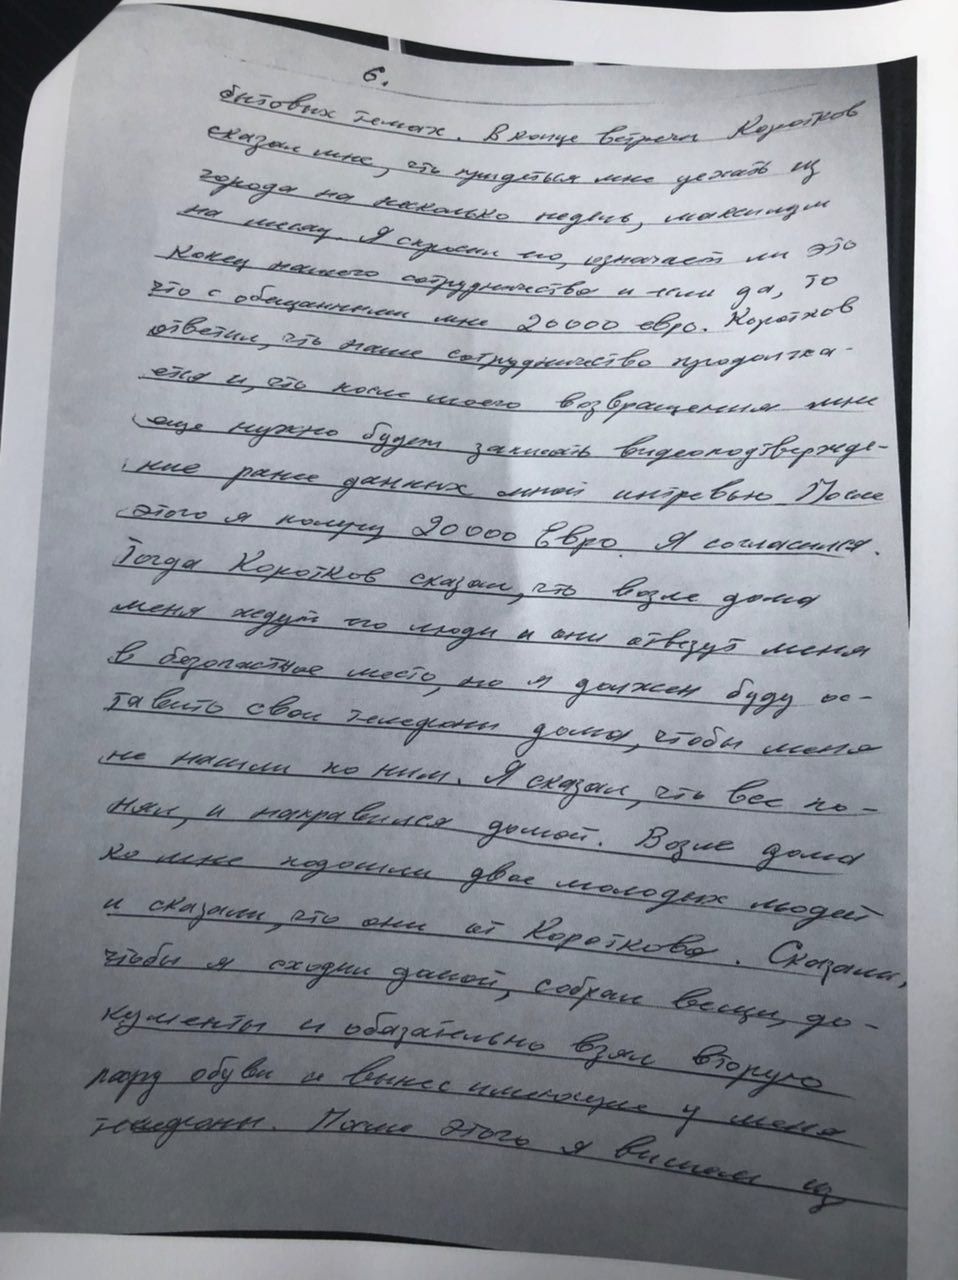 6.
бытовых темах. В конце встречи Коротков
сказал мне, что придеться мне уехать из
города на несколько недель, максимум
на месяц. Я спросил его, означает ли это
конец нашего сотрудничества и если да, то
что с обещанными мне 20000 евро. Коротков
ответил, что наше сотрудничество продолжа-
ется и, что после моего возвращения мне
еще нужно будет записать видеоподтвержде-
ние ранее данных мной интревью. После
этого я получу 20000 Евро. Я согласился.
Тогда Коротков сказал, что возле дома
меня ждут его люди и они отвезут меня
в безопастное место, но я должен буду ос-
тавить свои телефоны дома, чтобы меня
не нашли по ним. Я сказал, что все по-
нял, и направился домой. Возле дома
ко мне подошли двое молодых людей
и сказали, что они от Короткова. Сказали,
чтобы я сходил домой, собрал вещи, до-
кументы и обазательно взял вторую
пару обуви и вынес имеющие у меня
телефоны. После этого я вышел из